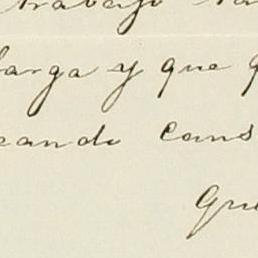 trabajo
larga y que
cando cans
Gru